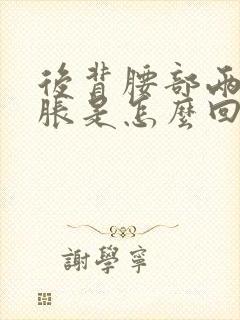 後背腰部兩
脹是怎麼回
謝學寧